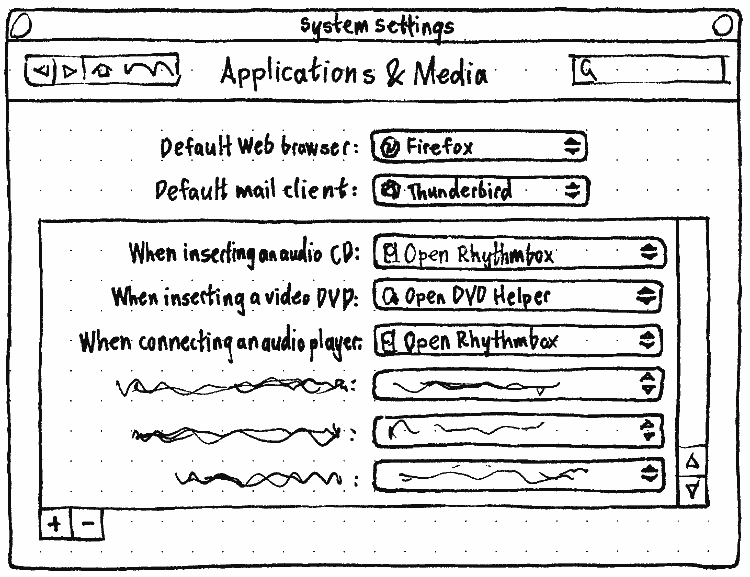 System Settings
Applications & Media
Default Web browser: Firefox
Default mail client: Thunderbird
When inserting an audio CD: Open Rhythmbox
When inserting a video DVD: Open DVD Helper
When connecting an audio player: Open Rhythmbox
+ -